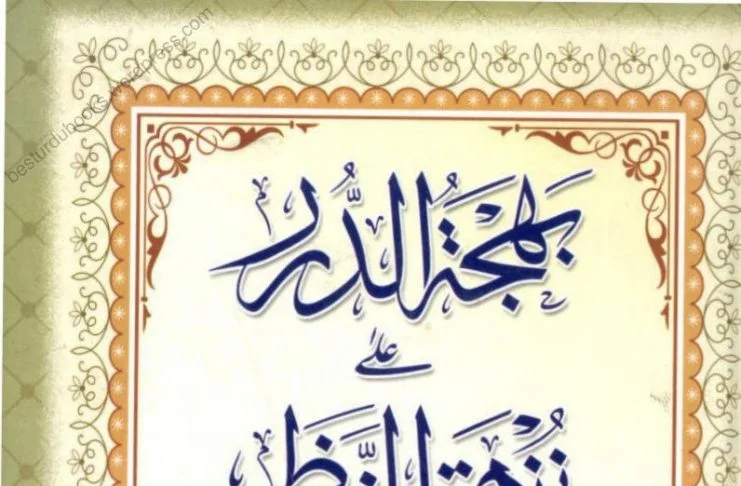 besturdubooks.wordpress.com
بهجة الدُّرر
على
نزهة النظر